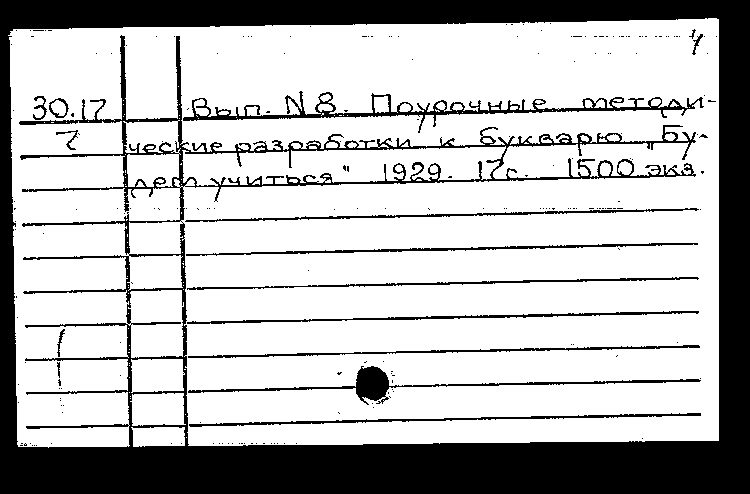 4
30.17 Вып. N 8. Поурочные методи-
7 ческие разработки к букварю „Бу-
дем учиться" 1929. 17с. 1500 экз.